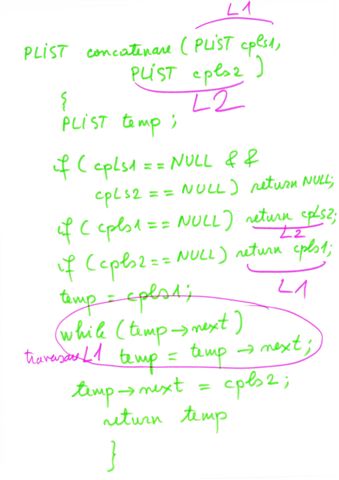 L1
PLIST concatenare (PLIST cpls1,
PLIST cpls2)
L2
{
PLIST temp;
if (cpls1 == NULL &&
cpls2 == NULL) return NULL;
if (cpls1 == NULL) return cpls2;
L2
if (cpls2 == NULL) return cpls1;
L1
temp = cpls1;
while (temp → next)
traversare L1 temp = temp → next;
temp → next = cpls2;
return temp
}